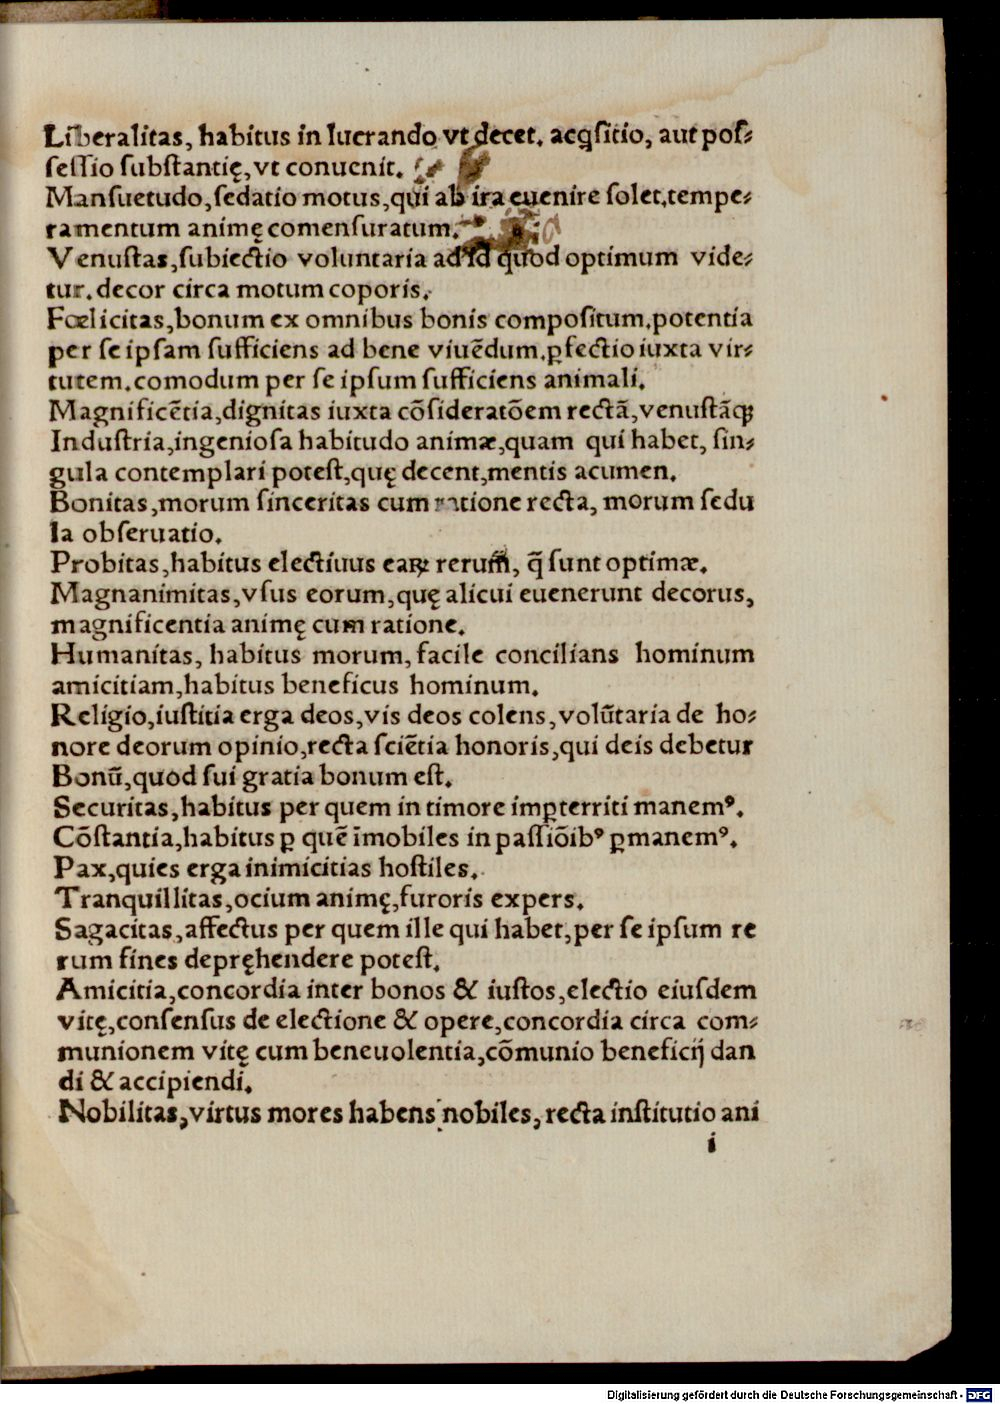 Liberalitas, habitus in lucrando vt decet. acqsitio, aut pos⸗
sessio substantię, vt conuenit.
Mansuetudo, sedatio motus, qui ab ira euenire solet, tempe⸗
ramentum animę comensuratum.
Venustas, subiectio voluntaria ad id quod optimum vide⸗
tur. decor circa motum coporis.
Fœlicitas, bonum ex omnibus bonis compositum. potentia
per se ipsam sufficiens ad bene viuēdum. ꝑfectio iuxta vir⸗
tutem. comodum per se ipsum sufficiens animali.
Magnificētia, dignitas iuxta cōsideratōem rectā, venustāqꝫ
Industria, ingeniosa habitudo animæ, quam qui habet, sin⸗
gula contemplari potest, quę decent, mentis acumen.
Bonitas, morum sinceritas cum ratione recta, morum sedu
la obseruatio.
Probitas, habitus electiuus eaꝝ rerum, q̄ sunt optimæ.
Magnanimitas, vsus eorum, quę alicui euenerunt decorus,
magnificentia animę cum ratione.
Humanitas, habitus morum, facile concilians hominum
amicitiam, habitus beneficus hominum.
Religio, iustitia erga deos, vis deos colens, volūtaria de ho⸗
nore deorum opinio, recta sciētia honoris, qui deis debetur
Bonū, quod sui gratia bonum est.
Securitas, habitus per quem in timore imꝑterriti manemꝰ.
Cōstantia, habitus ꝑ quē īmobiles in passiōibꝰ ꝑmanemꝰ.
Pax, quies erga inimicitias hostiles.
Tranquillitas, ocium animę, furoris expers.
Sagacitas, affectus per quem ille qui habet, per se ipsum re
rum fines depręhendere potest.
Amicitia, concordia inter bonos & iustos, electio eiusdem
vitę, consensus de electione & opere, concordia circa com⸗
munionem vitę cum beneuolentia, cōmunio beneficij dan
di & accipiendi.
Nobilitas, virtus mores habens nobiles, recta institutio ani
i
Digitalisierung gefördert durch die Deutsche Forschungsgemeinschaft - DFG